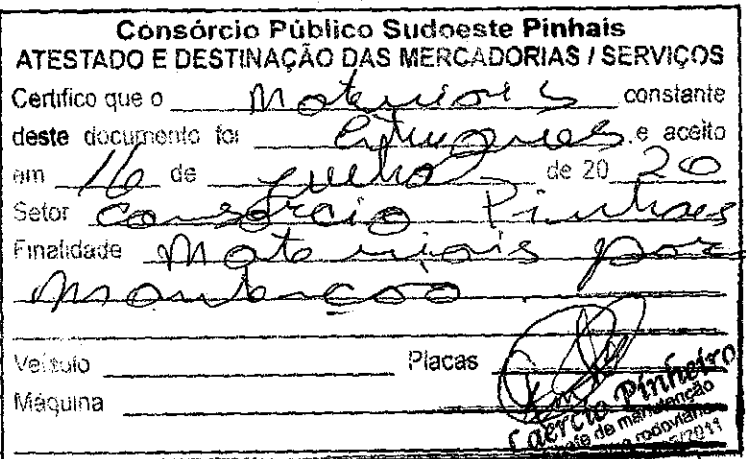 Consórcio Público Sudoeste Pinhais
ATESTADO E DESTINAÇÃO DAS MERCADORIAS / SERVIÇOS
Certifico que o Materiais constante
deste documento foi entregues e aceito
em 16 de julho de 20 20
Setor Consórcio Pinhaes
Finalidade Materiais por
Manutenção
Veículo Placas
Máquina
Laercio Pinheiro
de manutenção
rodoviário
/2011